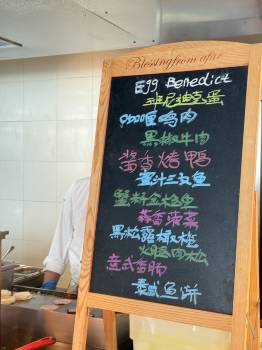 Blessing from afar
Egg Benedict
班尼迪克蛋
咖喱鸡肉
黑椒牛肉
酱香烤鸭
蜜汁三文鱼
蟹籽金枪鱼
蒜香菠菜
黑松露橄榄
火腿肉松
意式香肠
泰式鱼饼